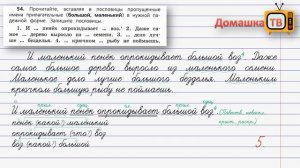 54. Прочитайте, вставляя в пословицы пропущенные
имена прилагательные (большой, маленький) в нужной па-
дежной форме. Запишите пословицы.
1. И ... пенёк опрокидывает ... воз.⁴ 2. Даже са-
мое ... дерево выросло из ... семени. 3. ... дело луч-
ше ... безделья. 4. ... крючком ... рыбу не поймаешь.
Домашка
ТВ
И маленький пенёк опрокидывает большой воз⁴. Даже
самое большое дерево выросло из маленького семени.
Маленькое дело лучше большого безделья. Маленьким
крючком большую рыбу не поймаешь.
И маленький пенёк опрокидывает большой воз⁴.
пенёк (какой?) маленький
опрокидывает (что?) воз
воз (какой?) большой
5.